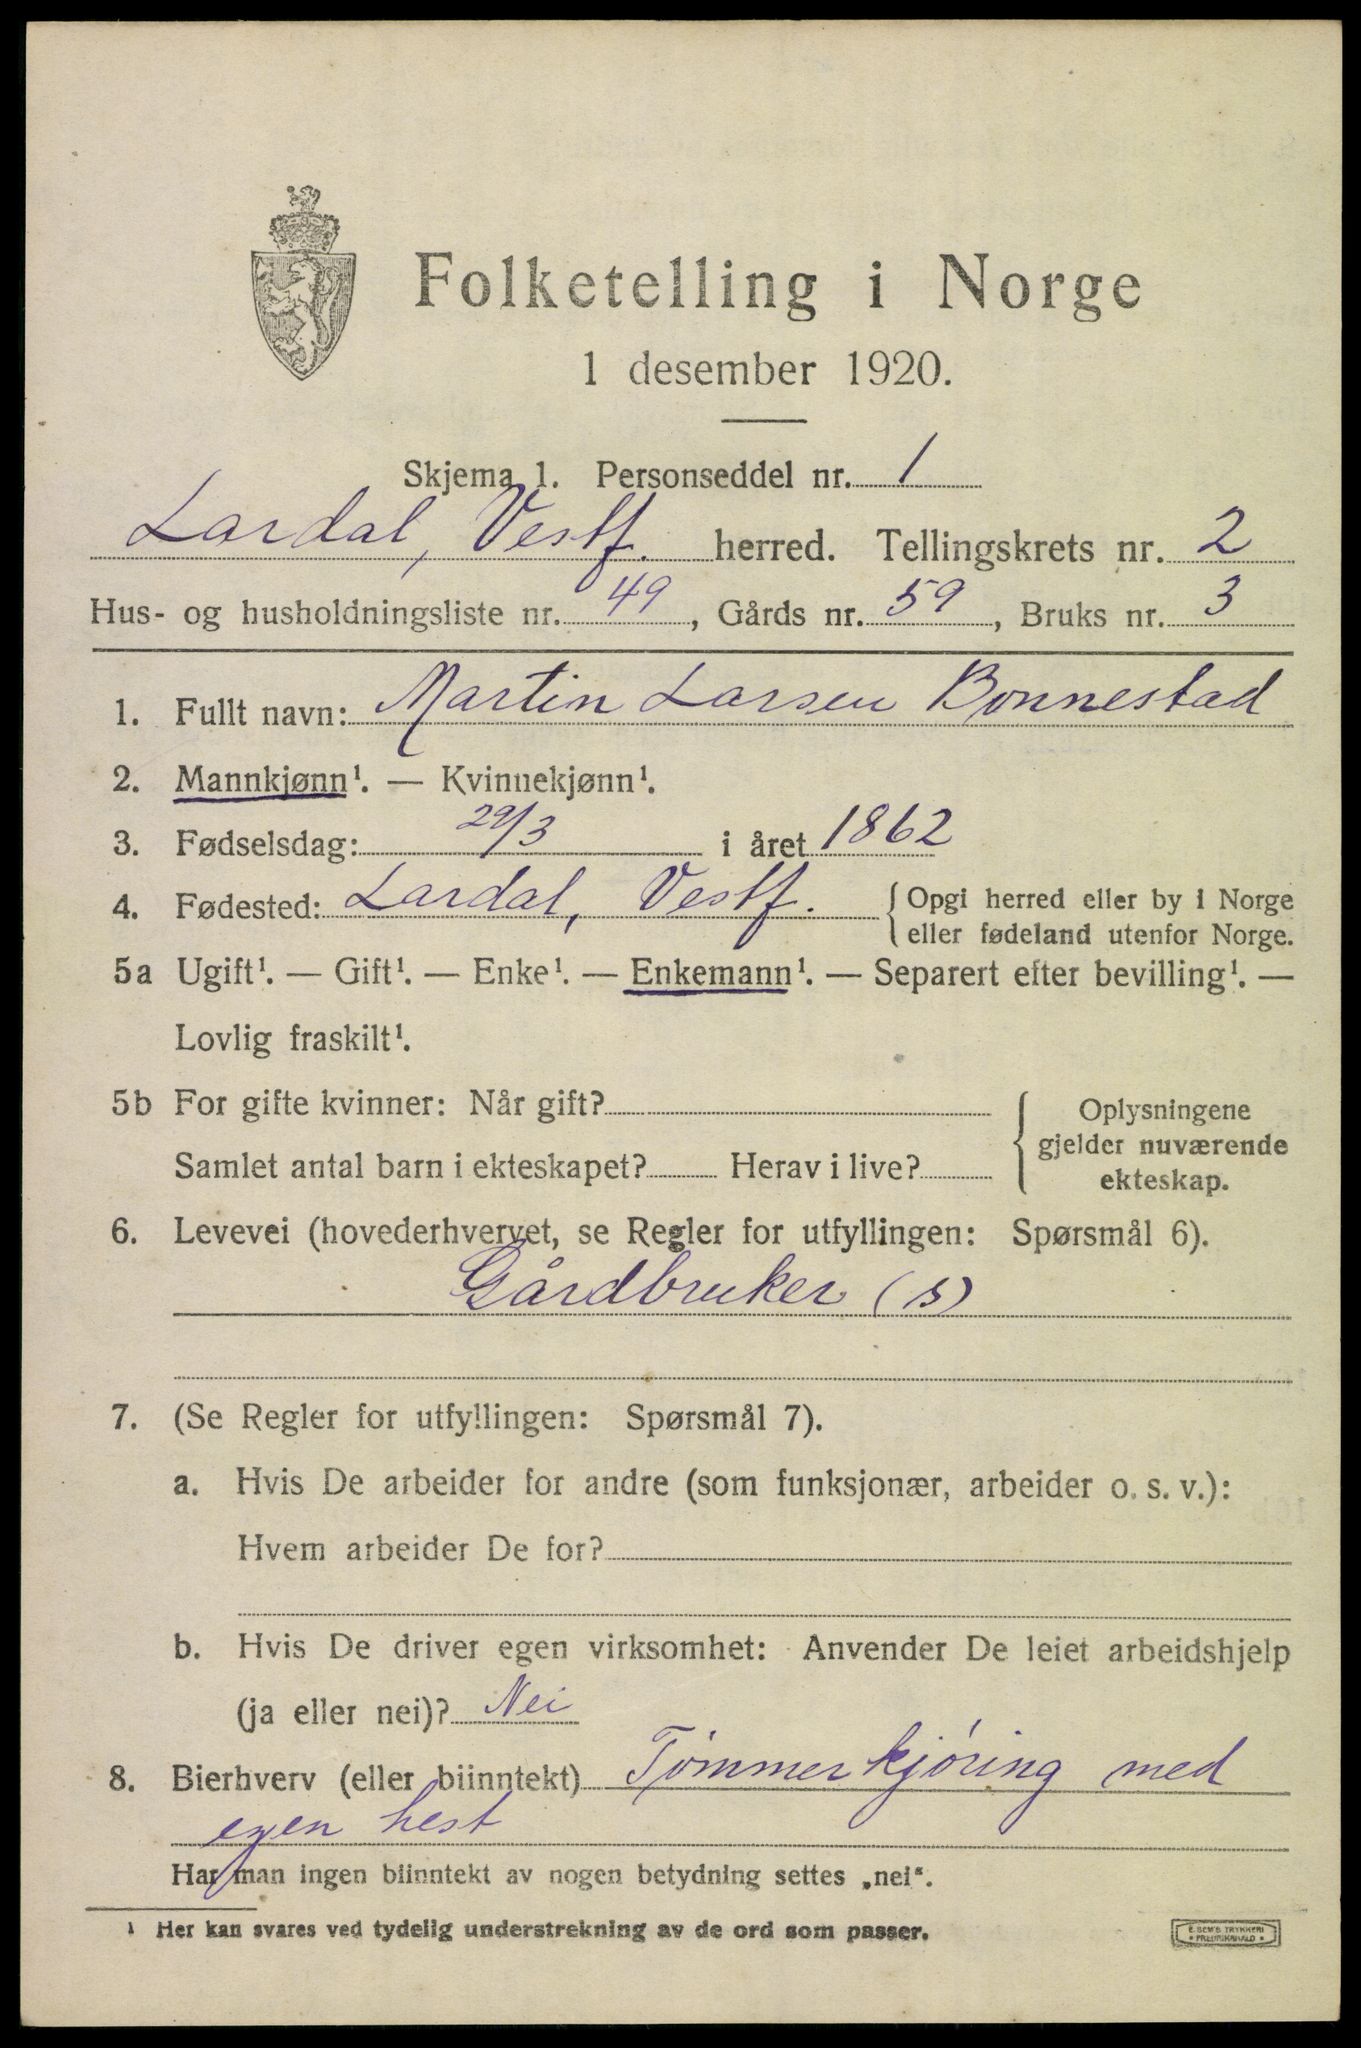 Folketelling i Norge
1 desember 1920.
Skjema 1. Personseddel nr. 1
Lardal, Vestf. herred. Tellingskrets nr. 2
Hus- og husholdningsliste nr. 49, Gårds nr. 59, Bruks nr. 3
1. Fullt navn: Martin Larsen Bonnestad
2. Mannkjønn¹. — Kvinnekjønn¹.
3. Fødselsdag: 29/3 i året 1862
4. Fødested: Lardal, Vestf. { Opgi herred eller by i Norge
eller fødeland utenfor Norge.
5a Ugift¹. — Gift¹. — Enke¹. — Enkemann¹. — Separert efter bevilling¹. —
Lovlig fraskilt¹.
5b For gifte kvinner: Når gift?
Samlet antal barn i ekteskapet? Herav i live?
Oplysningene
gjelder nuværende
ekteskap.
6. Levevei (hovederhvervet, se Regler for utfyllingen: Spørsmål 6).
Gårdbruker (s)
7. (Se Regler for utfyllingen: Spørsmål 7).
a. Hvis De arbeider for andre (som funksjonær, arbeider o. s. v.):
Hvem arbeider De for?
b. Hvis De driver egen virksomhet: Anvender De leiet arbeidshjelp
(ja eller nei)? Nei
8. Bierhverv (eller biinntekt) Tømmerkjøring med
egen hest
Har man ingen biinntekt av nogen betydning settes „nei“.
¹ Her kan svares ved tydelig understrekning av de ord som passer.
E. SEM'S TRYKKERI
FREDRIKSHALD